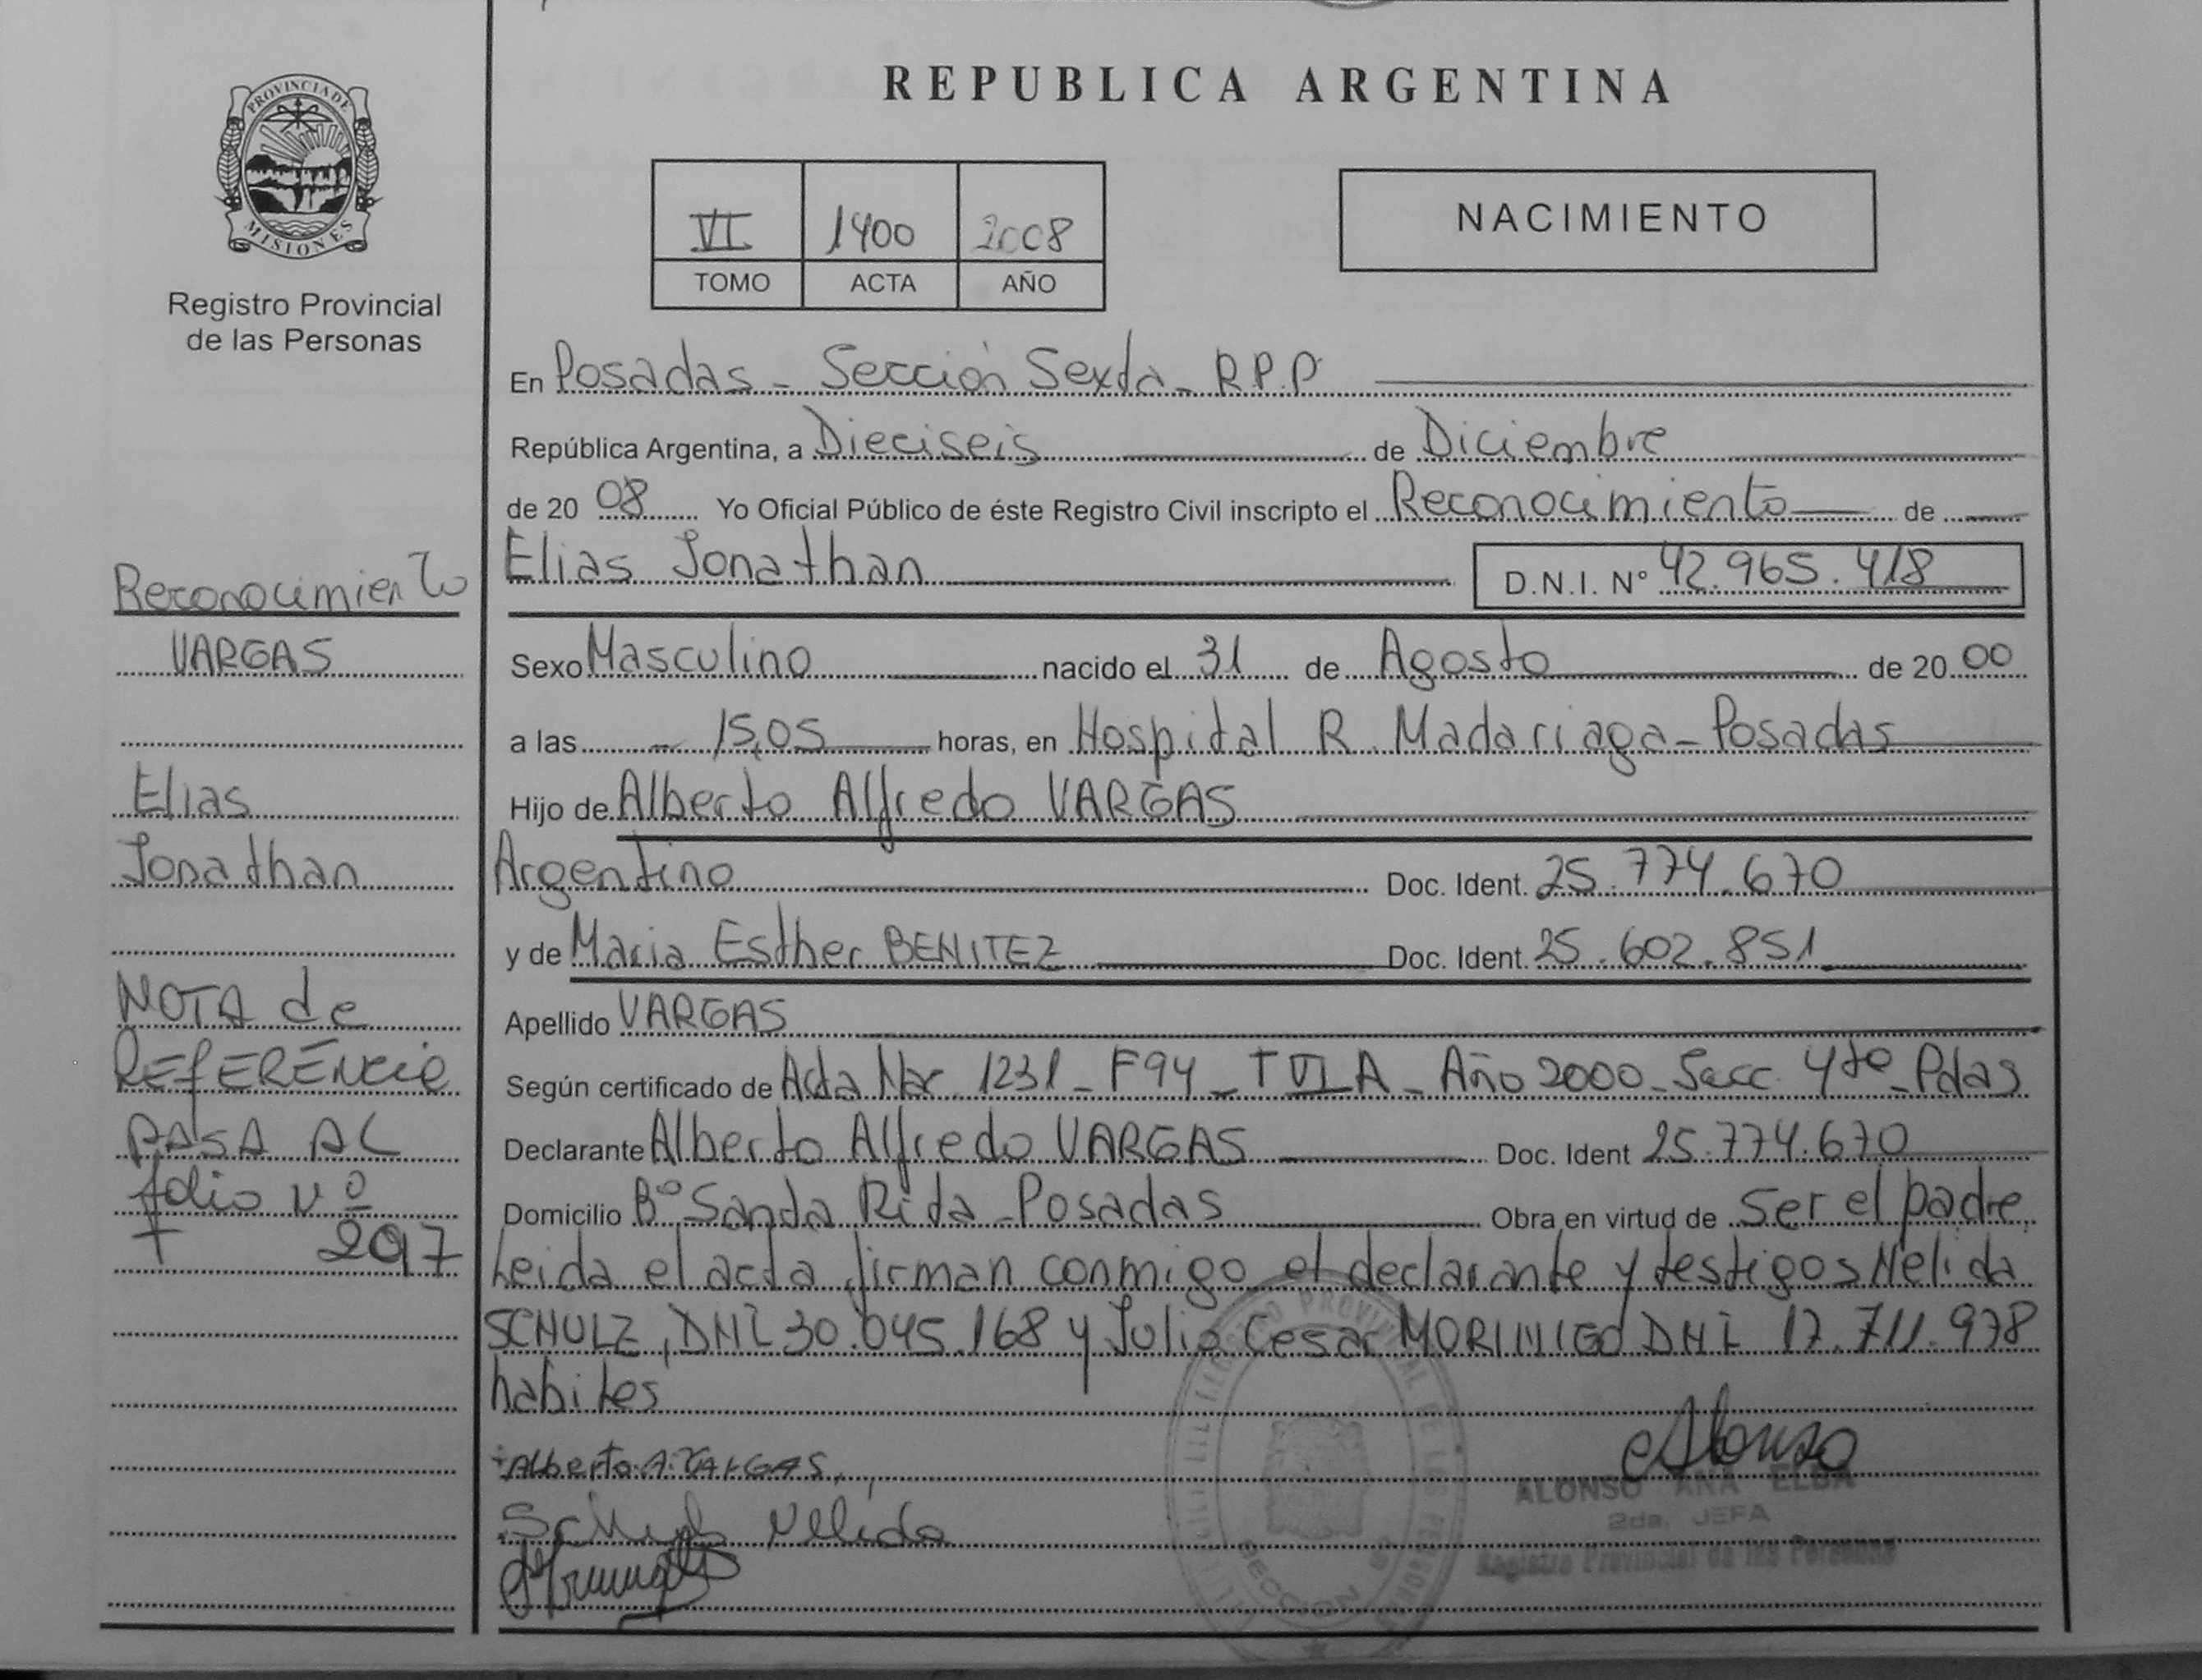 REPUBLICA ARGENTINA
PROVINCIA DE
MISIONES
Registro Provincial
de las Personas
VI 1400 2008
TOMO ACTA AÑO
NACIMIENTO
En Posadas - Sección Sexta - R.P.P
República Argentina, a Dieciseis de Diciembre
de 20 08 Yo Oficial Público de éste Registro Civil inscripto el Reconocimiento de
Elias Jonathan D.N.I. N° 42.965.418
Sexo Masculino nacido el 31 de Agosto de 20 00
a las 15,05 horas, en Hospital R. Madariaga - Posadas
Hijo de Alberto Alfredo VARGAS
Argentino Doc. Ident. 25.774.670
y de Maria Esther BENITEZ Doc. Ident. 25.602.851
Apellido VARGAS
Según certificado de Acta Nac. 1231 - F94 - T VI A - Año 2000 - Secc. 4ta - Pdas
Declarante Alberto Alfredo VARGAS Doc. Ident 25.774.670
Domicilio B° Santa Rita - Posadas Obra en virtud de ser el padre,
Leida el acta firman conmigo el declarante y testigos Nelida
SCHULZ, DNI 30.045.168 y Julio Cesar MORINIGO DNI 17.711.978
habiles
Alberto A. VARGAS
Nelida
ALONSO ANA ELBA
2da. JEFA
Registro Provincial de las Personas
REGISTRO PROVINCIAL DE LAS PERSONAS
SECCION 6
Reconocimiento
VARGAS
Elias
Jonathan
NOTA de
REFERENCIA
PASA AL
folio Nº
297